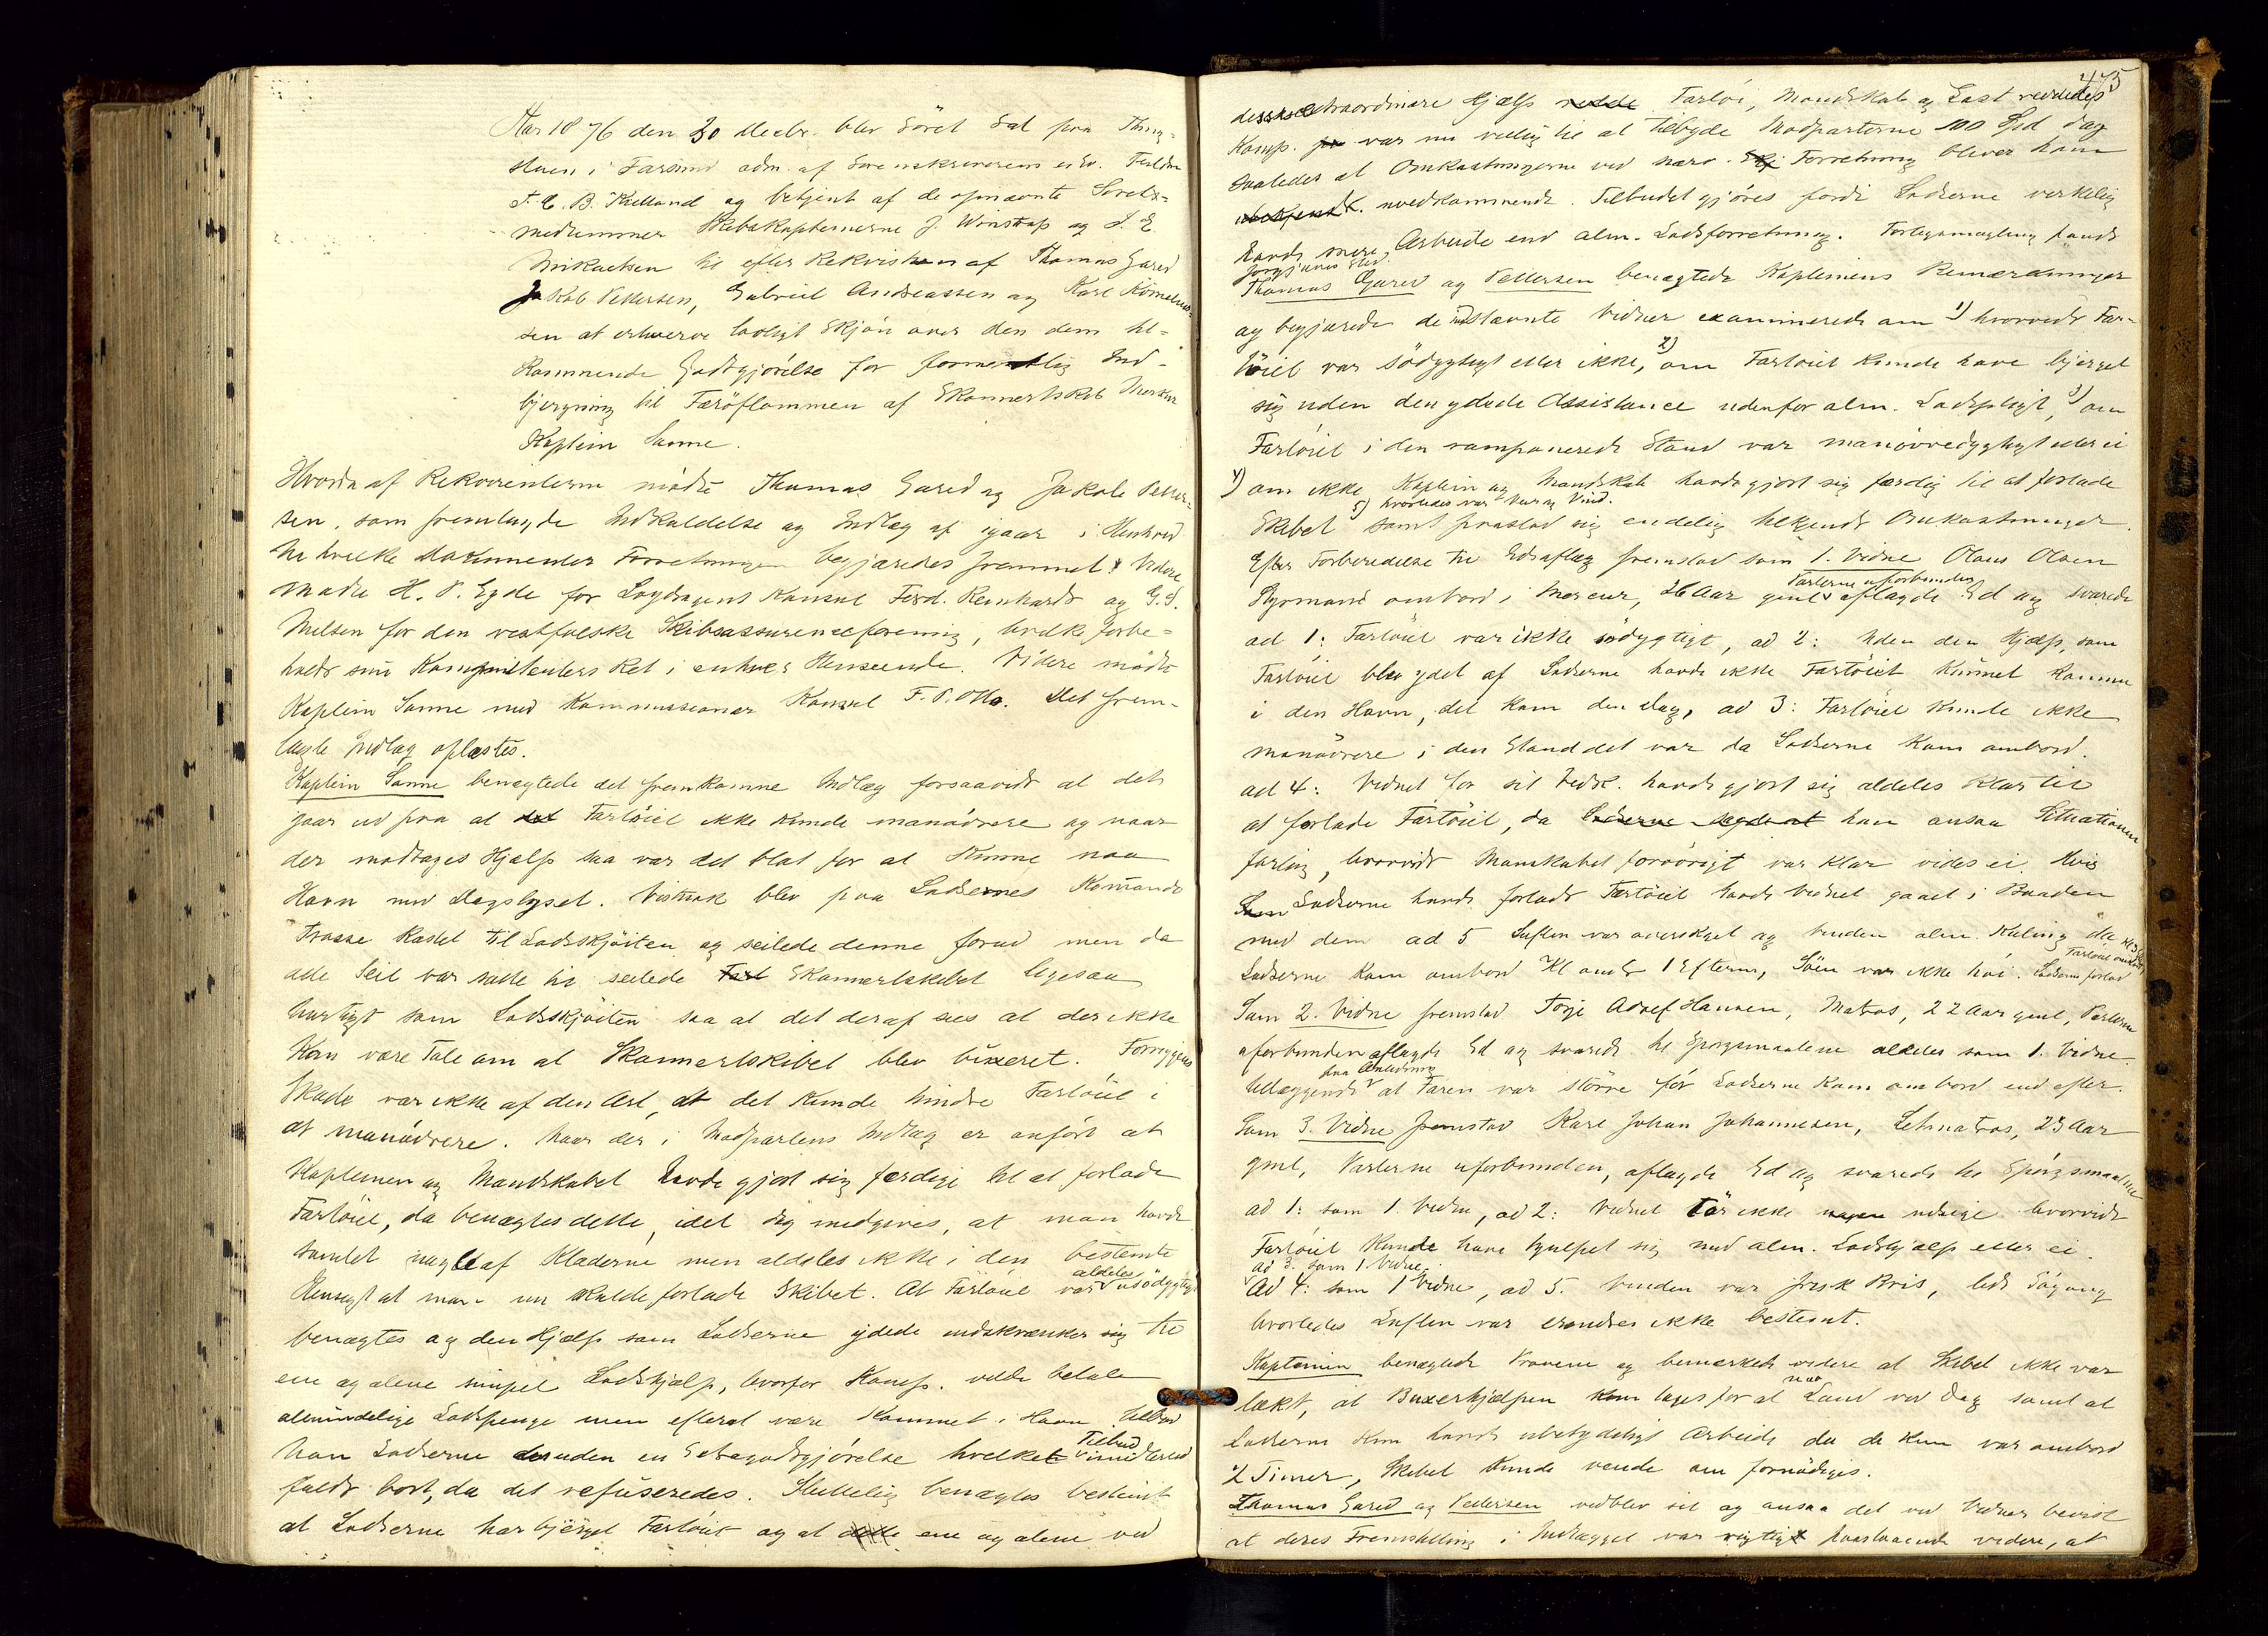 Aar 1876 den 30 Decbr. blev Söret Sat paa Thing-
stuen i Farsund adm. af Sorenskriverens edsv. Fuldm
T. C. B. Kielland og betjent af de opnævnte Sörets-
medlemmer Skibskapteinerne J. Winstrup og S. E.
Mikaelsen til efter Rekvisition af Thomas Gared
Jakob Pettersen, Gabriel Andreassen og Karl Kornelius-
sen at erhverve lovligt Skjön over den dem til-
kommende Godtgjörelse for formentlig Ind-
bjergning til Faröflommen af Skonnertskib Merkur
Kaptein Sanne.
Hvorda af Rekvirenterne mödte Thomas Gared og Jakob Petter-
sen, som fremlagde Indkaldelse og Indlæg af igaar i Henhold
til hvilke Dokumenter Forretningen begjæredes fremmet. Videre
mödte H. P. Egde for Loydsagent Konsul Ferd. Reinhardt og G. S.
Nielsen for den vestfoldske Skibsassuranceforening, hvilke forbe-
holdt sine Kommittenters Ret i enhver Henseende. Videre mödte
Kaptein Sanne med Kommissionær Konsul F. P. Otto. Det frem-
lagte Indlæg oplæstes.
Kaptein Sanne benægtede det fremkomne Indlæg forsaavidt at det
gaar ud paa at det Fartöiet ikke kunde manövrere og naar
der modtages Hjælp saa var det blot for at kunne naa
Havn med Dagslyset. Vistnok blev paa Lodsernes Komando
Trosse kastet til Lodsskjöiten og seilede denne forud men da
alle Seil var satte til seilede Fart Skonnertskibet ligesaa
hurtigt som Lodsskjöiten saa at det deraf sees at der ikke
kan være Tale om at Skonnertskibet blev buxeret. Forreggens
Skade var ikke af den Art, at det kunde hindre Fartöiet i
at manövrere. Naar der i Modpartens Indlæg er anfört at
Kapteinen og Mandskabet havde gjort sig færdige til at forlade
Fartöiet, da benægtes dette, idet dog medgives, at man havde
samlet nogle af Klæderne men aldeles ikke i den bestemte
Hensigt at man nu skulde forlade Skibet. At Fartöiet var aldeles usödygtigt
benægtes og den Hjælp som Lodserne ydede indskrænker sig til
ene og alene simpel Lodshjælp, hvorfor Komp. vilde betale
almindelige Lodspenge men efterat være kommet i Havn tilböd
han Lodserne desuden en Extragodtgjörelse hvilket Tilbud imidlertid
faldt bort, da det refuseredes. Sluttelig benægtes bestemt
at Lodserne har bjerget Fartöiet og at dette ene og alene ved
475
deres extraordinære Hjælp redde Fartöi, Mandskab og Last reddedes
Komp. var nu villig til at tilbyde Modparterne 100 Spd dog
saaledes at Omkastningerne ved nærv. Skj Forretning bliver ham
uvedkommende. Tilbudet gjöres fordi Lodserne virkelig
havde mere Arbeide end alm. Lodsforretning. Forligsmægling fandt
forgjæves Sted
Thomas Gared og Pettersen benægtede Kapteinens Bemærkninger
og begjærede de indstævnte Vidner examinerede om 1) hvorvidt Far-
töiet var södygtigt eller ikke, 2) om Fartöiet kunde have bjerget
sig uden den ydede Assistance udenfor alm. Lodspligt, 3) om
Fartöiet i den ramponerede Stand var manövredygtigt eller ei
4) om ikke Kaptein og Mandskab havde gjort sig færdig til at forlade
Skibet 5) hvorledes var Veir og Vind. samt paastod sig endelig tilkjendt Omkostninger.
Efter Forberedelse til Edsaflæg fremstod som 1. Vidne Olaus Olsen
Styrmand ombord i Mercur, 26 Aar gml Parterne uforbunden aflagde Ed og svarede
ad 1: Fartöiet var ikke södygtigt, ad 2: Uden den Hjælp, som
Fartöiet blev ydet af Lodserne havde ikke Fartöiet kunnet komme
i den Havn, det kom den Dag, ad 3: Fartöiet kunde ikke
manövrere i den Stand det var da Lodserne kom ombord.
ad 4: Vidnet for sit Vedk. havde gjort sig aldeles klar til
at forlade Fartöiet, da Lodserne sagde at han ansaa Situationen
farlig, hvorvidt Manskabet forövrigt var klar vides ei. Hvis
Som Lodserne havde forladt Fartöiet havde Vidnet gaaet i Baaden
med dem ad 5 Luften var overskyet og Vinden alm. Kuling da
Lodserne kom ombord Kl omtr 1 Efterm, Söen var ikke höi. Lodserne forlod Fartöiet
Som 2. Vidne fremstod Torje Adolf Hansen, Matros, 22 Aar gml, Parterne
uforbunden aflagde Ed og svarede til Spörgsmaalene aldeles som 1. Vidne
tillæggende paa Anledning at Faren var större för Lodserne kom ombord end efter.
Som 3. Vidne fremstod Karl Johan Johannesen, Letmatros, 23 Aar
gml, Parterne uforbunden, aflagde Ed og svarede til Spörgsmaalene
ad 1: som 1 Vidne, ad 2: Vidnet tör ikke udsige hvorvidt
Fartöiet kunde have hjulpet sig med alm. Lodshjælp eller ei.
ad 3. som 1 Vidne.
Ad 4: som 1 Vidne, ad 5. Vinden var frisk Bris, lidt Sögang
hvorledes Luften var erindres ikke bestemt.
Kapteinen benægtede Provene og bemærkede videre at Skibet ikke var
lækt, at Buxerhjælpen kom toges for at naa Land ved Dag samt at
Lodserne kun havde ubetydeligt Arbeide da de kun var ombord
2 Timer, Skibet kunde vende om fornödiges.
Thomas Gared og Pettersen vedblev sit og ansaa det ved Vidner bevist
at deres Fremstilling i Indlægget var rigtigt paastaaende videre, at